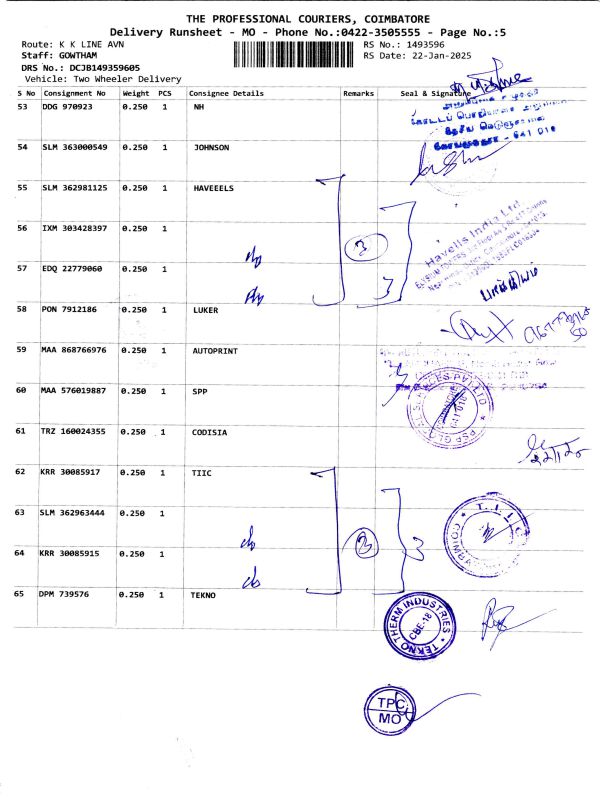 THE PROFESSIONAL COURIERS, COIMBATORE
Delivery Runsheet - MO - Phone No.:0422-3505555 - Page No.:5
Route: K K LINE AVN
RS No.: 1493596
Staff: GOWTHAM
RS Date: 22-Jan-2025
DRS No.: DCJB149359605
Vehicle: Two Wheeler Delivery
S No Consignment No Weight PCS Consignee Details Remarks Seal & Signature
53 DDG 970923 0.250 1 NH
54 SLM 363000549 0.250 1 JOHNSON
55 SLM 362981125 0.250 1 HAVEEELS
56 IXM 303428397 0.250 1
57 EDQ 22779060 0.250 1
58 PON 7912186 0.250 1 LUKER
59 MAA 868766976 0.250 1 AUTOPRINT
60 MAA 576019887 0.250 1 SPP
61 TRZ 160024355 0.250 1 CODISIA
62 KRR 30085917 0.250 1 TIIC
63 SLM 362963444 0.250 1
64 KRR 30085915 0.250 1
65 DPM 739576 0.250 1 TEKNO
641 018
Havells India Ltd
3
3
3
3
22/1/25
T.I.I.C
TEKNO THERM INDUSTRIES
CBE-18
TPC
MO